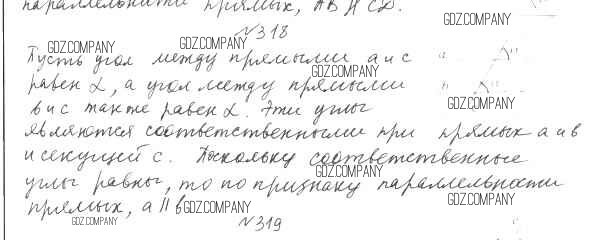 параллельности прямых, AB || CD.
GDZ.COMPANY
N318
GDZ.COMPANY GDZ.COMPANY
Пусть угол между прямыми а и с
GDZ.COMPANY
равен α, а угол между прямыми
GDZ.COMPANY
в и с также равен α. Эти углы
являются соответственными при прямых а и в
GDZ.COMPANY
и секущей с. Поскольку соответственные
GDZ.COMPANY
углы равны, то по признаку параллельности
прямых, а || в
GDZ.COMPANY GDZ.COMPANY
GDZ.COMPANY
N319